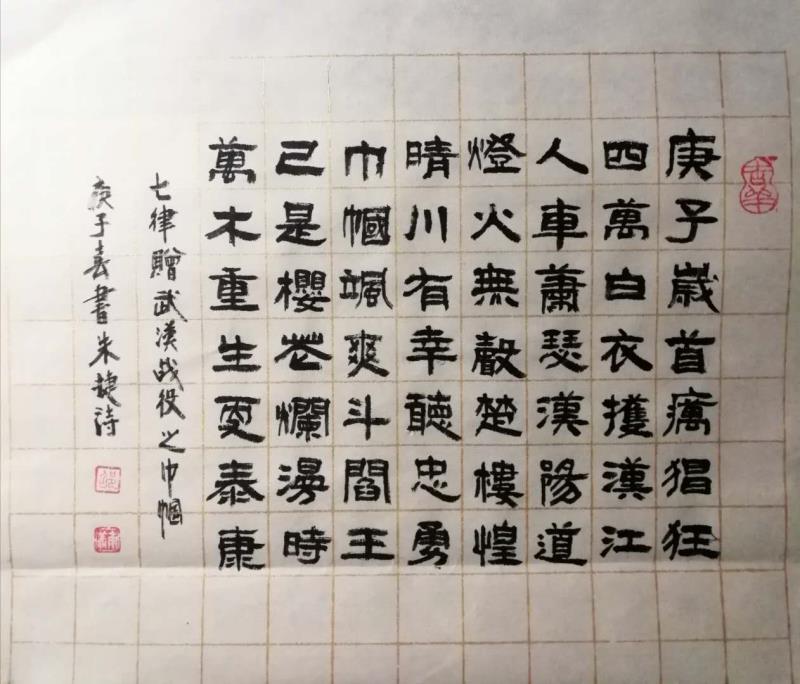 庚子歲首癘猖狂
四萬白衣擭漢江
人車蕭瑟漢陽道
燈火無聲楚樓惶
晴川有幸聽忠勇
巾幗颯爽斗閻王
己是櫻花爛漫時
萬木重生更泰康
七律贈武漢战役之巾幗
庚子春書朱詩